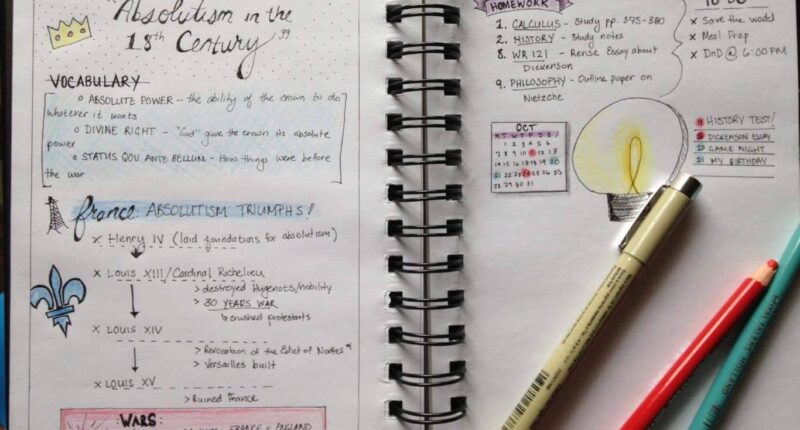 "Absolutism in the
18th Century"
VOCABULARY
ABSOLUTE POWER – the ability of the crown to do
whatever it wants
DIVINE RIGHT – "God" gave the crown its absolute
power
STATUS QOU ANTE BELLUM – How things were before
the war
france: ABSOLUTISM TRIUMPHS!
x Henry IV (laid foundations for absolutism)
x Louis XIII/Cardinal Richelieu
> destroyed Hugenots/nobility
> 30 YEARS WAR
↳ crushed protestants
x LOUIS XIV
> Revocation of the Edict of Nantes
> Versailles built
x LOUIS XV
> Ruined France
WARS:
FRANCE x ENGLAND
HOMEWORK
1. CALCULUS – Study pp. 375-380
2. HISTORY – Study notes
8. WR 121 – Revise Essay about
Dickenson
9. PHILOSOPHY – Outline paper on
Nietzche
TO DO
x Save the world
x Meal Prep
x DnD @ 6:00 PM
OCT
M T W T F S S
1 2 3 4 5 6
7 8 9 10 11 12 13
14 15 16 17 18 19 20
21 22 23 24 25 26 27
28 29 30 31
HISTORY TEST!
DICKENSON ESSAY
GAME NIGHT
21 MY BIRTHDAY